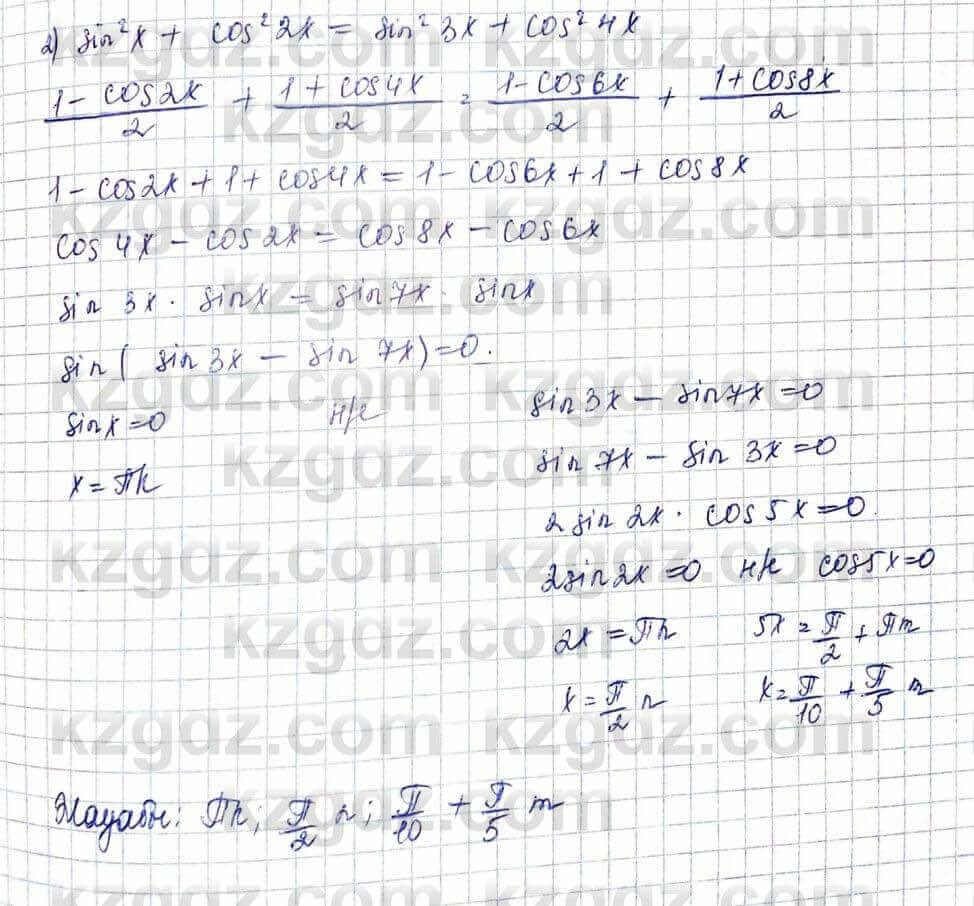 2) sin²x + cos²2x = sin²3x + cos²4x
(1 - cos2x)/2 + (1 + cos4x)/2 = (1 - cos6x)/2 + (1 + cos8x)/2
1 - cos2x + 1 + cos4x = 1 - cos6x + 1 + cos8x
cos4x - cos2x = cos8x - cos6x
sin 3x · sinx = sin7x · sinx
sin( sin3x - sin7x) = 0.
sinx = 0 н/е sin3x - sin7x = 0
x = πk sin7x - sin3x = 0
2sin2x · cos5x = 0
2sin2x = 0 н/е cos5x = 0
2x = πn 5x = π/2 + πm
x = π/2 n x = π/10 + π/5 m
Жауабы: πk; π/2 n; π/10 + π/5 m
kzgdz.com